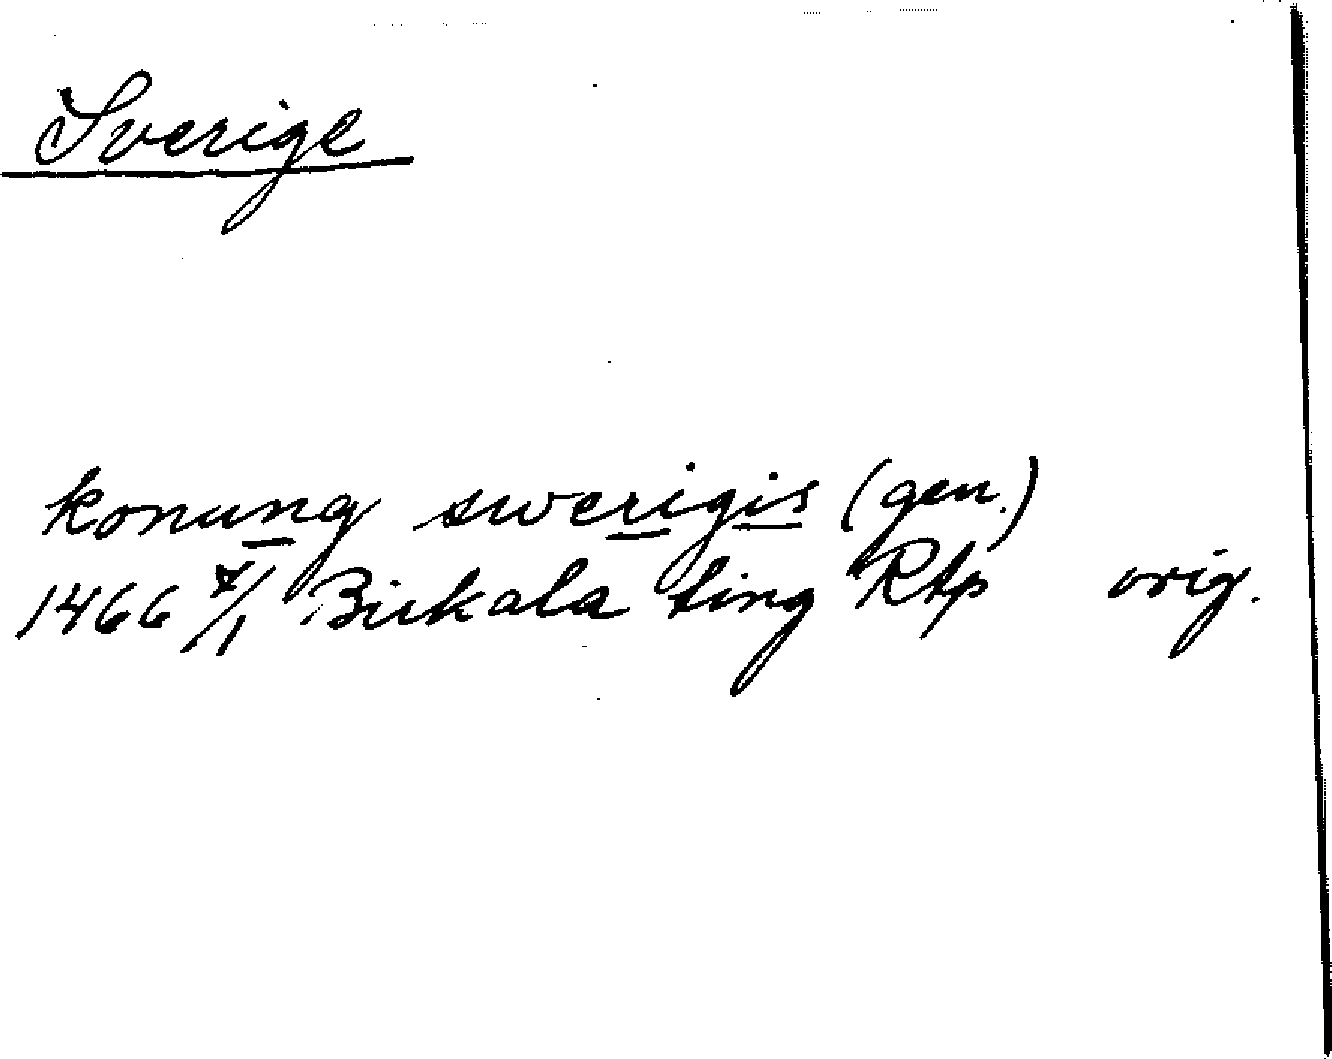 Sverige
konung swerigis (gen.)
1466 7/1 Birkala ting Rtp orig.